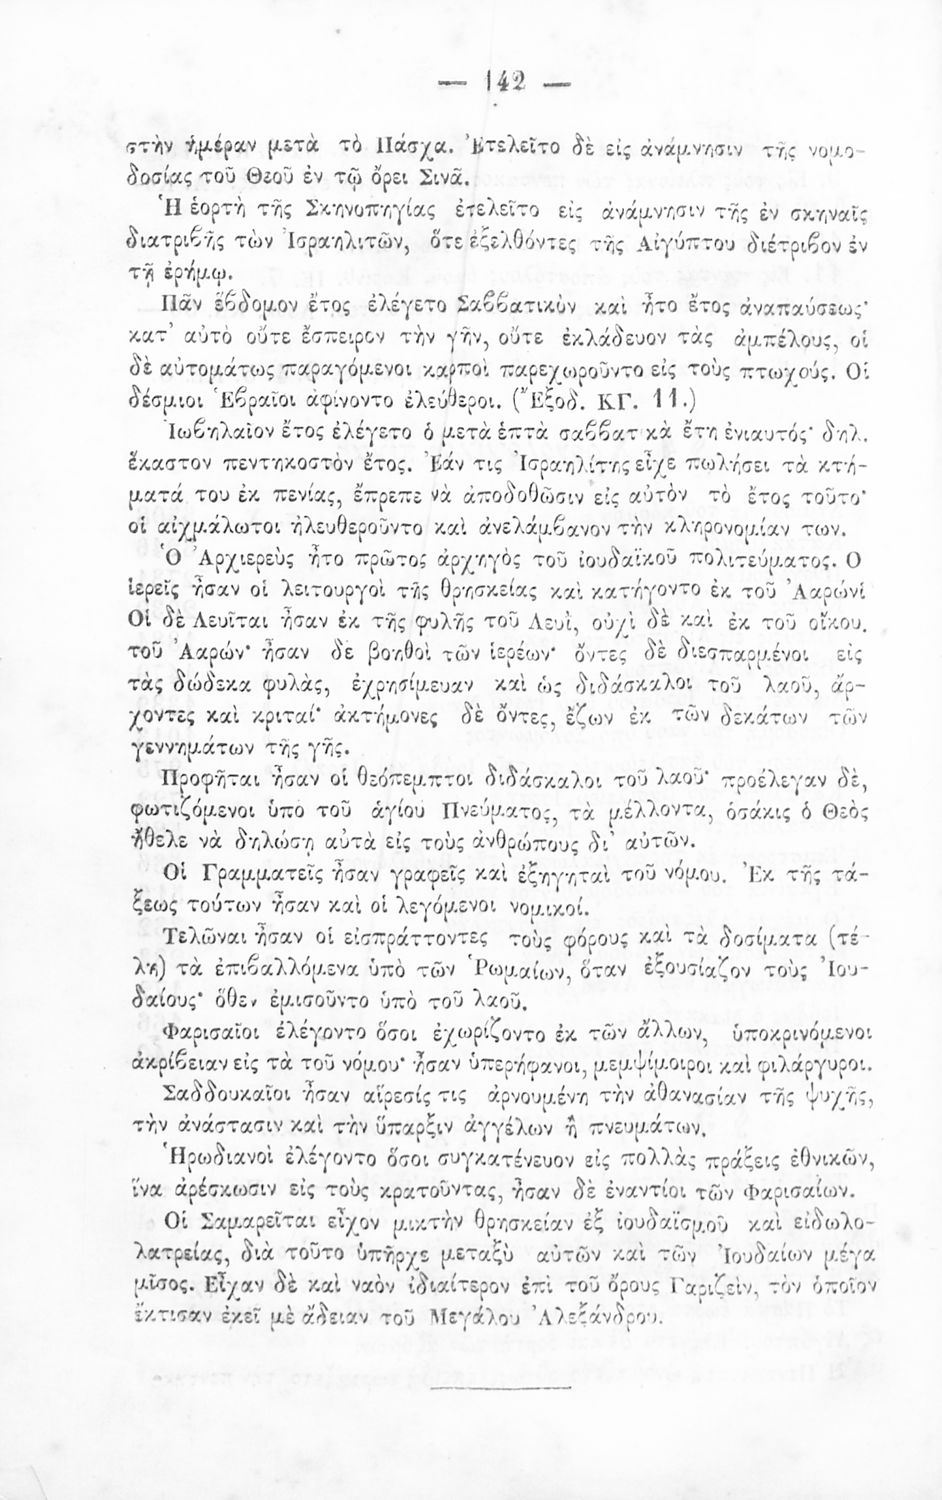 — 142 —
στὴν ἡμέραν μετὰ τὸ Πάσχα. Ἐτελεῖτο δὲ εἰς ἀνάμνησιν τῆς νομο-
δοσίας τοῦ Θεοῦ ἐν τῷ ὄρει Σινᾶ.
Ἡ ἑορτὴ τῆς Σκηνοπηγίας ἐτελεῖτο εἰς ἀνάμνησιν τῆς ἐν σκηναῖς
διατριβῆς τῶν Ἰσραηλιτῶν, ὅτε ἐξελθόντες τῆς Αἰγύπτου διέτριβον ἐν
τῇ ἐρήμῳ.
Πᾶν ἕβδομον ἔτος ἐλέγετο Σαββατικὸν καὶ ἦτο ἔτος ἀναπαύσεως·
κατ' αὐτὸ οὔτε ἔσπειρον τὴν γῆν, οὔτε ἐκλάδευον τὰς ἀμπέλους, οἱ
δὲ αὐτομάτως παραγόμενοι καρποὶ παρεχωροῦντο εἰς τοὺς πτωχούς. Οἱ
δέσμιοι Ἑβραῖοι ἀφίνοντο ἐλεύθεροι. (Ἔξοδ. ΚΓ. 11.)
Ἰωβηλαῖον ἔτος ἐλέγετο ὁ μετὰ ἑπτὰ σαββατ κὰ ἔτη ἐνιαυτός· δηλ.
ἕκαστον πεντηκοστὸν ἔτος. Ἐάν τις Ἰσραηλίτης εἶχε πωλήσει τὰ κτή-
ματά του ἐκ πενίας, ἔπρεπε νὰ ἀποδοθῶσιν εἰς αὐτὸν τὸ ἔτος τοῦτο·
οἱ αἰχμάλωτοι ἠλευθεροῦντο καὶ ἀνελάμβανον τὴν κληρονομίαν των.
Ὁ Ἀρχιερεὺς ἦτο πρῶτος ἀρχηγὸς τοῦ ἰουδαϊκοῦ πολιτεύματος. Ο
ἱερεῖς ἦσαν οἱ λειτουργοὶ τῆς θρησκείας καὶ κατήγοντο ἐκ τοῦ Ἀαρώνί
Οἱ δὲ Λευῖται ἦσαν ἐκ τῆς φυλῆς τοῦ Λευὶ, οὐχὶ δὲ καὶ ἐκ τοῦ οἴκου.
τοῦ Ἀαρών· ἦσαν δὲ βοηθοὶ τῶν ἱερέων· ὄντες δὲ διεσπαρμένοι εἰς
τὰς δώδεκα φυλὰς, ἐχρησίμευαν καὶ ὡς διδάσκαλοι τοῦ λαοῦ, ἄρ-
χοντες καὶ κριταί· ἀκτήμονες δὲ ὄντες, ἔζων ἐκ τῶν δεκάτων τῶν
γεννημάτων τῆς γῆς.
Προφῆται ἦσαν οἱ θεόπεμπτοι διδάσκαλοι τοῦ λαοῦ· προέλεγαν δὲ,
φωτιζόμενοι ὑπὸ τοῦ ἁγίου Πνεύματος, τὰ μέλλοντα, ὁσάκις ὁ Θεὸς
ἤθελε νὰ δηλώσῃ αὐτὰ εἰς τοὺς ἀνθρώπους δι' αὐτῶν.
Οἱ Γραμματεῖς ἦσαν γραφεῖς καὶ ἐξηγηταὶ τοῦ νόμου. Ἐκ τῆς τά-
ξεως τούτων ἦσαν καὶ οἱ λεγόμενοι νομικοί.
Τελῶναι ἦσαν οἱ εἰσπράττοντες τοὺς φόρους καὶ τὰ δοσίματα (τέ-
λη) τὰ ἐπιβαλλόμενα ὑπὸ τῶν Ῥωμαίων, ὅταν ἐξουσίαζον τοὺς Ἰου-
δαίους· ὅθεν ἐμισοῦντο ὑπὸ τοῦ λαοῦ.
Φαρισαῖοι ἐλέγοντο ὅσοι ἐχωρίζοντο ἐκ τῶν ἄλλων, ὑποκρινόμενοι
ἀκρίβειαν εἰς τὰ τοῦ νόμου· ἦσαν ὑπερήφανοι, μεμψίμοιροι καὶ φιλάργυροι.
Σαδδουκαῖοι ἦσαν αἵρεσίς τις ἀρνουμένη τὴν ἀθανασίαν τῆς ψυχῆς,
τὴν ἀνάστασιν καὶ τὴν ὕπαρξιν ἀγγέλων ἢ πνευμάτων.
Ἡρωδιανοὶ ἐλέγοντο ὅσοι συγκατένευον εἰς πολλὰς πράξεις ἐθνικῶν,
ἵνα ἀρέσκωσιν εἰς τοὺς κρατοῦντας, ἦσαν δὲ ἐναντίοι τῶν Φαρισαίων.
Οἱ Σαμαρεῖται εἶχον μικτὴν θρησκείαν ἐξ ἰουδαϊσμοῦ καὶ εἰδωλο-
λατρείας, διὰ τοῦτο ὑπῆρχε μεταξὺ αὐτῶν καὶ τῶν Ἰουδαίων μέγα
μῖσος. Εἶχαν δὲ καὶ ναὸν ἰδιαίτερον ἐπὶ τοῦ ὄρους Γαριζεὶν, τὸν ὁποῖον
ἔκτισαν ἐκεῖ μὲ ἄδειαν τοῦ Μεγάλου Ἀλεξάνδρου.